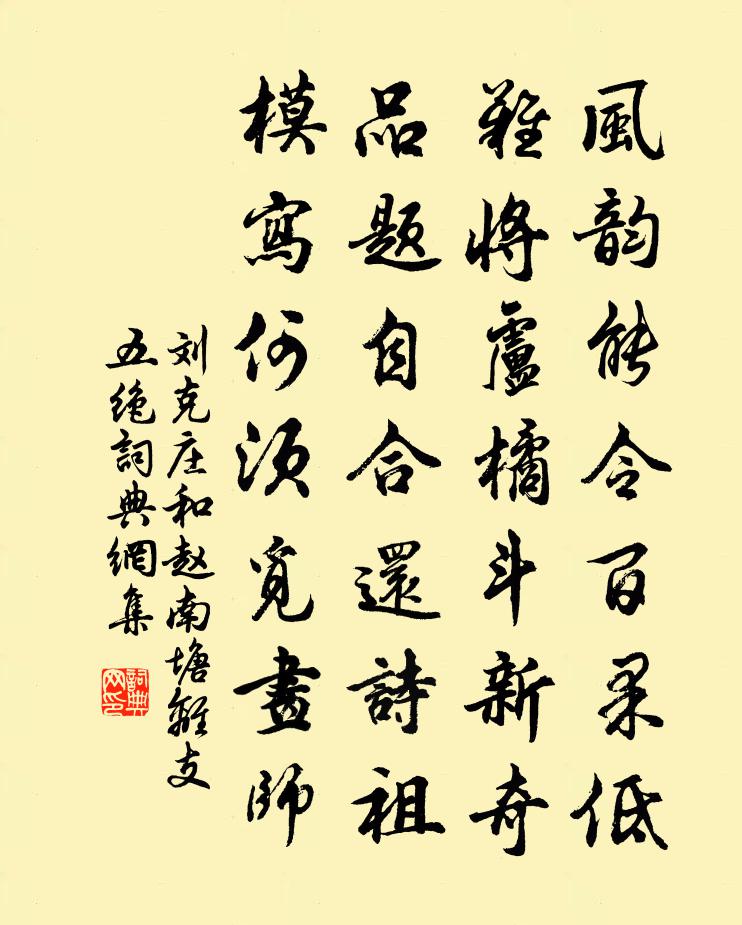 風韵能令百果低
難將盧橘斗新奇
品题自合還詩祖
模寫何须覓畫師
刘克庄和赵南塘離支
五绝詞典網集
詞典网印